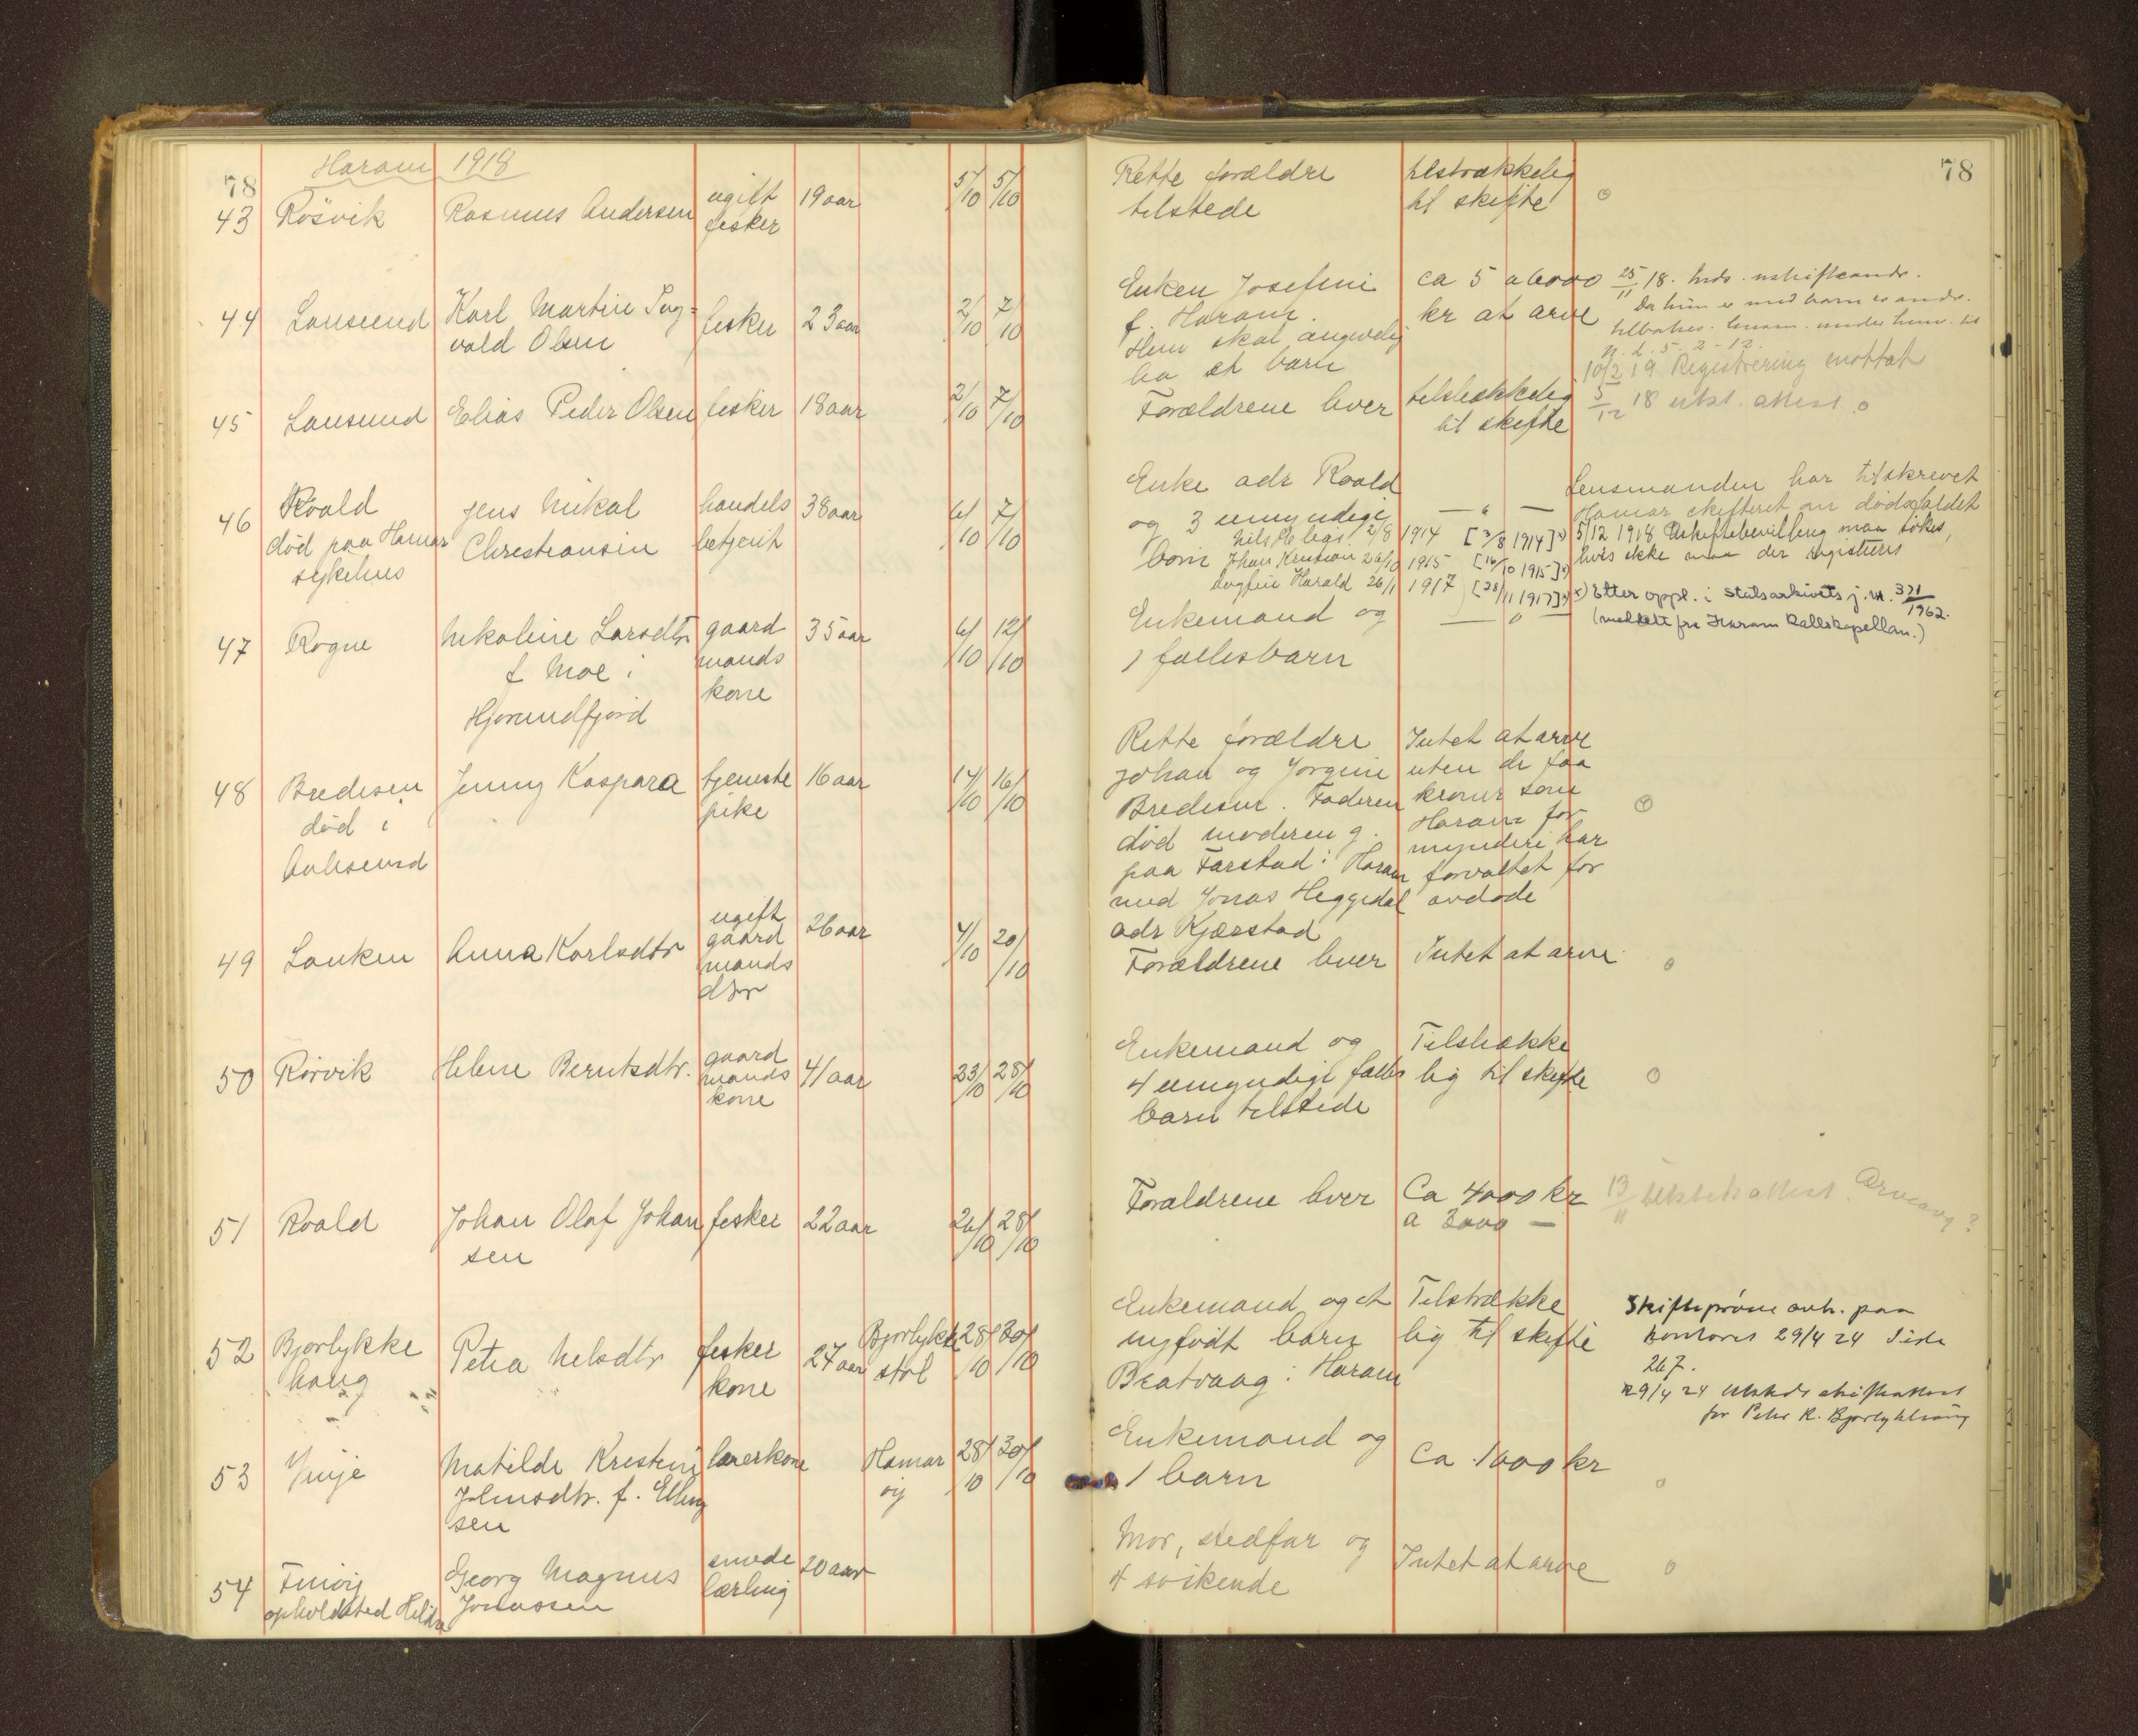 78 Haram 1918 78
43 Rösvik Rasmus Andersen ugift 19 aar 5/10 5/10 Rette forældre tilstrækkelig
fesker tilstede til skifte
44 Lausund Karl Martin Ing= fesker 23 aar 2/10 7/10 Enken Josefine ca 5 a 6000 25/11 18.
vald Olsen f. Haram. kr at arve
Hun skal angivelig
ha et barn 10/2 19 Registrering mottat
45 Lausund Elias Peder Olsen fesker 18 aar 2/10 7/10 Forældrene lever tilstrækkelig 5/12 18 utst. attest
til skifte
46 Roald Jens Mikal handels 38 aar 6/10 7/10 Enke adr Roald — " — Lensmanden har tilskrevet
død paa Hamar Christiansen betjent og 3 umyndige Hamar skifteret om dødsfaldet
sykehus 2/8 1914 [3/8 1914]x) 5/12 1918 Uskiftebevilling maa søkes,
born Johan Kristian 26/10 1915 [16/10 1915]x) hvis ikke maa der registreres
Harald 26/1 1917 [28/11 1917]x) x) Etter oppl. i statsarkivets j.nr. 371/1962.
(meddelt fra Haram kallskapellan.)
47 Rogne Nikoline Larsdtr gaard 35 aar 6/10 12/10 Enkemand og — " —
f Moe i mands 1 fællesbarn
Hjørundfjord kone
48 Bredesen Jenny Kaspara tjeneste 16 aar 14/10 16/10 Rette forældre Intet at arve
død i pike Johan og Jorgine uten de faa
Aalesund Bredesen. Faderen kroner som
død moderen g. Haram for
paa Farstad i Haram mynderi har
med Jonas Heggedal forvaltet for
adr Kjærstad avdøde
49 Lauken Anna Karlsdtr ugift 26 aar 4/10 20/10 Forældrene lever Intet at arve
gaard
mands
dtr
50 Rørvik Helene Berntsdtr. gaard 41 aar 23/10 28/10 Enkemand og Tilstrække
mands 4 umyndige fælles lig til skifte
kone barn tilstede
51 Roald Johan Olaf Johan fesker 22 aar 26/10 28/10 Forældrene lever Ca 4000 kr 13/11 Arveavg?
sen a 3000 —
52 Bjorlykke Petra Nelsdtr fesker 27 aar Bjorlykke 28/10 30/10 Enkemand og et Tilstrække Skifteprøve avh. paa
haug kone stol nyfødt barn lig til skifte kontoret 29/4 24 Side
Bratvaag i Haram 267.
29/4 24 utstedt skifteattest
for Peter R. Bjørlykhaug
53 Vinje Matilde Kristine lærerkone Hamar 28/10 30/10 Enkemand og Ca 1000 kr
Johnsdtr. f. Elling øij 1 barn
sen
54 Finøij Georg Magnus smede 20 aar Mor, stedfar og Intet at arve
opholdsted Hildre Jonassen lærling 4 søskende